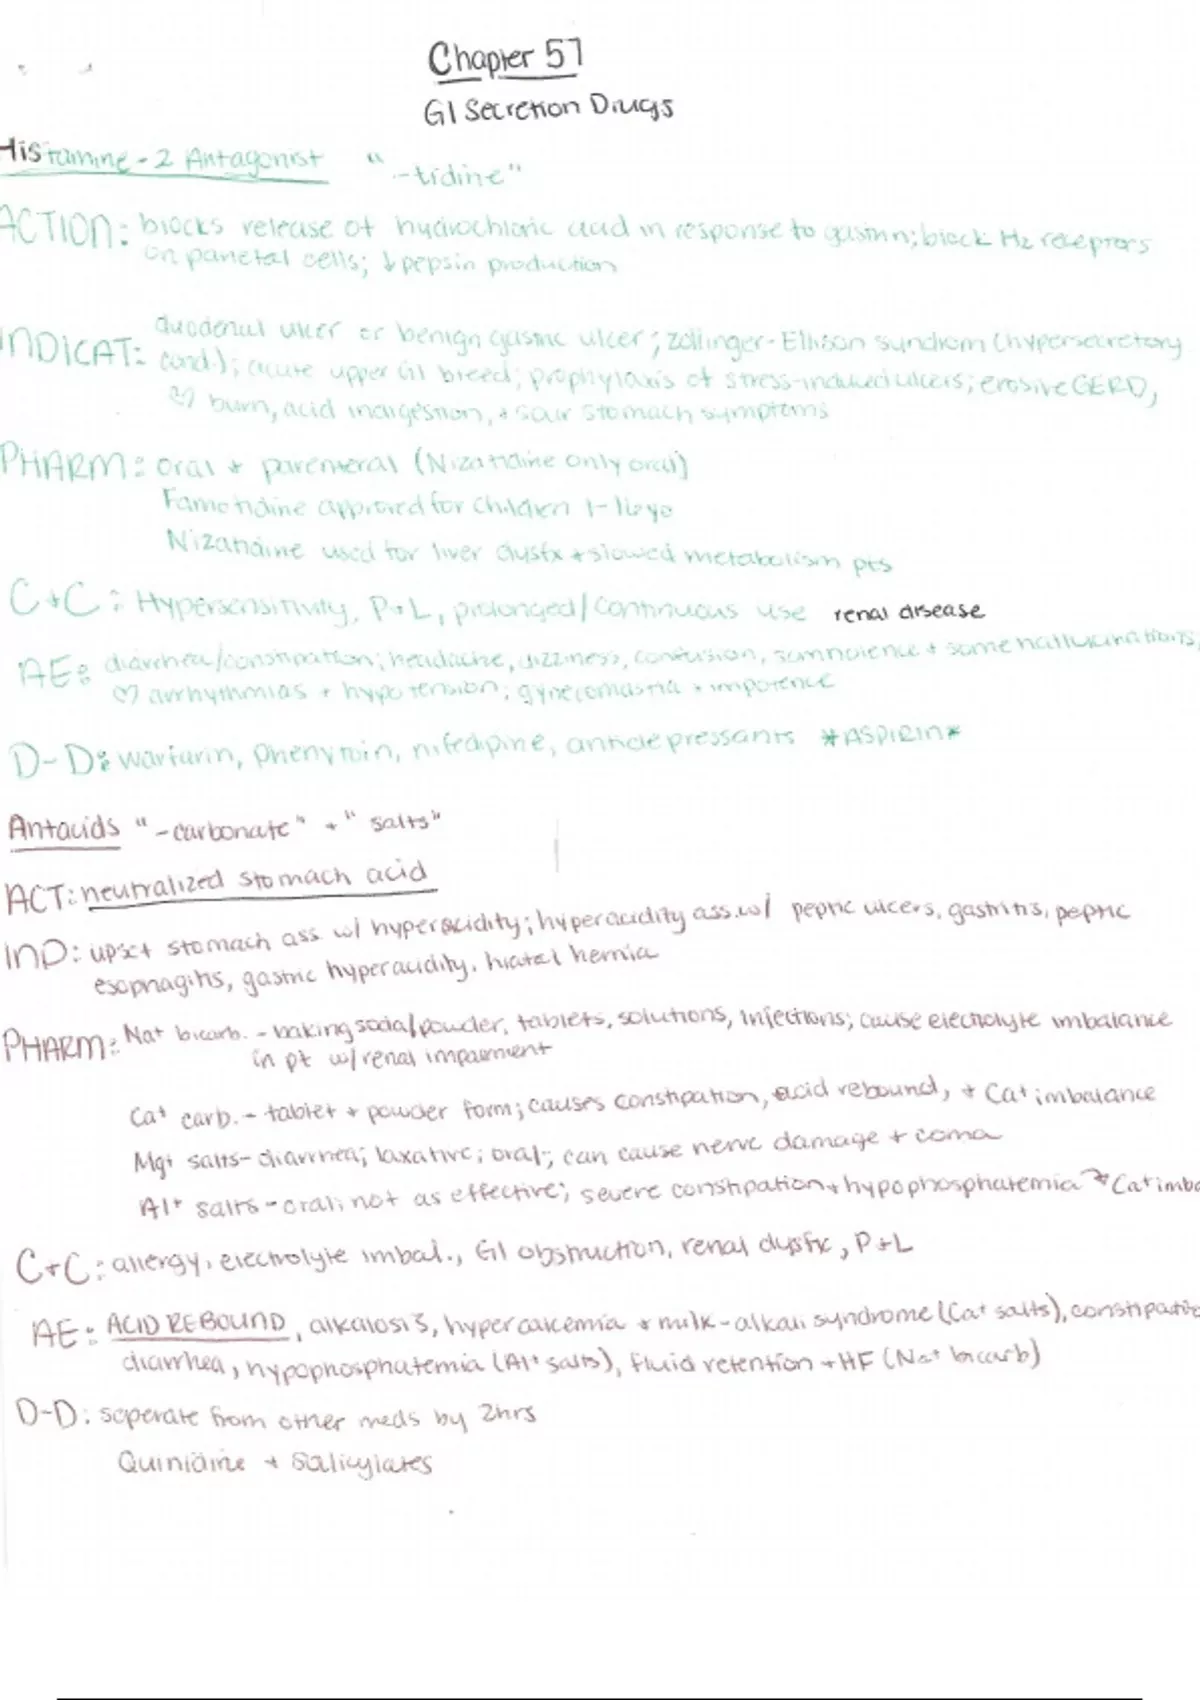 Chapter 57
GI Secretion Drugs
Histamine-2 Antagonist "-tidine"
ACTION: blocks release of hydrochloric acid in response to gastrin; block H2 receptors
on parietal cells; ↓pepsin production
INDICAT: duodenal ulcer or benign gastric ulcer; zollinger-Ellison syndrom (hypersecretory
cond.); acute upper GI bleed; prophylaxis of stress-induced ulcers; erosive GERD,
♡ burn, acid indigestion, + sour stomach symptoms
PHARM: oral + parenteral (Nizatidine only oral)
Famotidine approved for children 1-16yo
Nizatidine used for liver dysfx + slowed metabolism pts
C+C: Hypersensitivity, P+L, prolonged/continuous use renal disease
AE: diarrhea/constipation; headache, dizziness, confusion, somnolence + some hallucinations;
♡ arrhythmias + hypotension; gynecomastia + impotence
D-D: warfarin, phenytoin, nifedipine, antidepressants *ASPIRIN*
Antacids "-carbonate" + "salts"
ACT: neutralized stomach acid
IND: upset stomach ass w/ hyperacidity; hyperacidity ass. w/ peptic ulcers, gastritis, peptic
esophagitis, gastric hyperacidity, hiatal hernia
PHARM: Na+ bicarb. - baking soda/powder, tablets, solutions, injections; cause electrolyte imbalance
in pt w/ renal impairment
Ca+ carb. - tablet + powder form; causes constipation, acid rebound, + Ca+ imbalance
Mg+ salts - diarrhea; laxative; oral; can cause nerve damage + coma
Al+ salts - oral; not as effective; severe constipation + hypophosphatemia → Ca+ imba
C+C: allergy, electrolyte imbal., GI obstruction, renal dysfx, P+L
AE: ACID REBOUND, alkalosis, hypercalcemia + milk-alkali syndrome (Ca+ salts), constipatio
diarrhea, hypophosphatemia (Al+ salts), fluid retention + HF (Na+ bicarb)
D-D: seperate from other meds by 2hrs
Quinidine + Salicylates